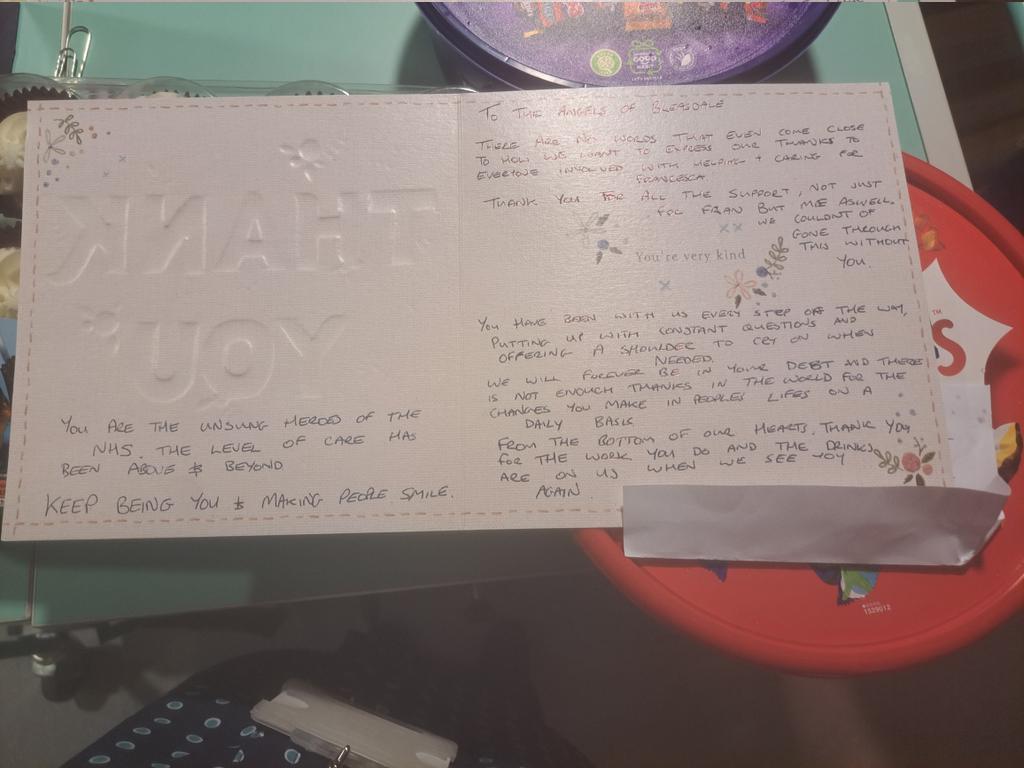 THANK
YOU
YOU ARE THE UNSUNG HEROES OF THE
NHS. THE LEVEL OF CARE HAS
BEEN ABOVE & BEYOND
KEEP BEING YOU & MAKING PEOPLE SMILE.
TO THE ANGELS OF BLEASDALE
THERE ARE NO WORDS THAT EVEN COME CLOSE
TO HOW WE WANT TO EXPRESS OUR THANKS TO
EVERYONE INVOLVED WITH HELPING + CARING FOR
FRANCESCA.
THANK YOU FOR ALL THE SUPPORT, NOT JUST
FOR FRAN BUT ME ASWELL.
WE COULDN'T OF
GONE THROUGH
THIS WITHOUT
YOU.
You're very kind
YOU HAVE BEEN WITH US EVERY STEP OFF THE WAY,
PUTTING UP WITH CONSTANT QUESTIONS AND
OFFERING A SHOULDER TO CRY ON WHEN
NEEDED.
WE WILL FOREVER BE IN YOUR DEBT AND THERE
IS NOT ENOUGH THANKS IN THE WORLD FOR THE
CHANGES YOU MAKE IN PEOPLES LIFES ON A
DAILY BASIS
FROM THE BOTTOM OF OUR HEARTS, THANK YOU
FOR THE WORK YOU DO AND THE DRINKS
ARE ON US WHEN WE SEE YOU
AGAIN.
S
1529012